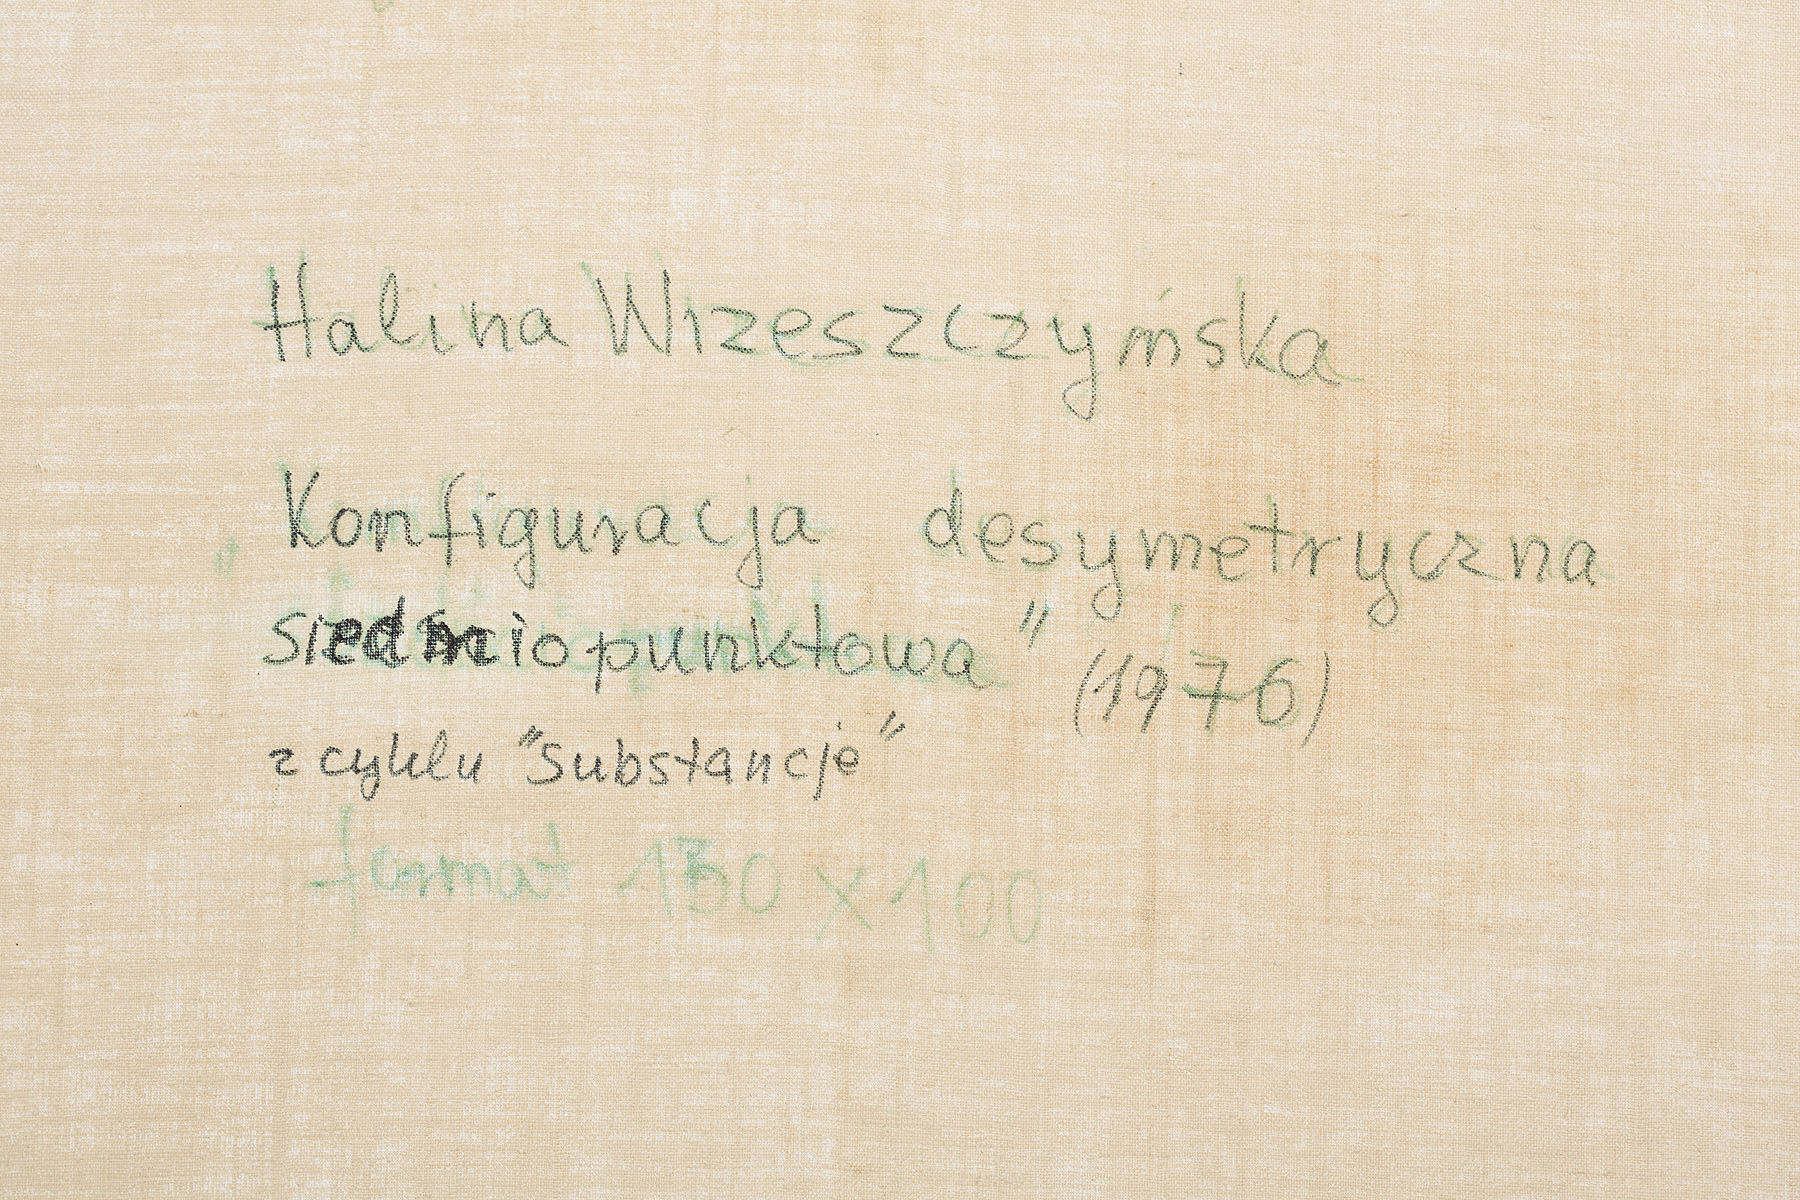 Halina Wrzeszczyńska
„Konfiguracja desymetryczna
siedmiopunktowa" (1976)
z cyklu "substancje"
format 130 x 100